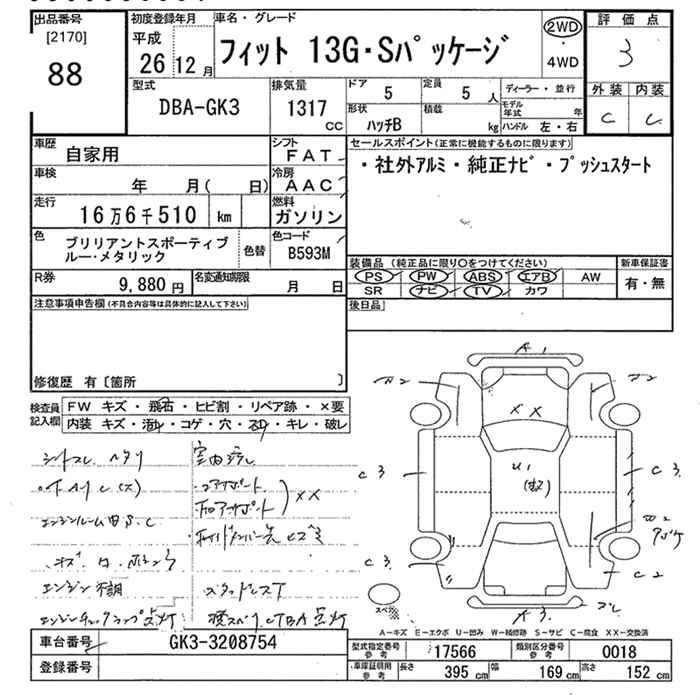 出品番号
[2170]
88
初度登録年月
平成
26 12 月
車名・グレード
フィット 13G・Sパッケージ
2WD
・
4WD
評価点
3
外装 内装
C C
型式
DBA-GK3
排気量
1317
CC
ドア
5
定員
5 人
形状
ハッチB
積載
kg
ディーラー・並行
モデル年式 年
ハンドル 左・右
車歴
自家用
シフト
FAT
車検
年 月( 日)
冷房
AAC
走行
16万6千510 km
燃料
ガソリン
色
ブリリアントスポーティブ
ルー・メタリック
色替
色コード
B593M
R券
9,880 円
名変通知期限
月 日
セールスポイント(正常に機能するものに限ります)
・社外アルミ・純正ナビ・プッシュスタート
装備品(純正品に限り○をつけてください)
PS PW ABS エアB AW
SR ナビ TV カワ
新車保証書
有・無
後日品
注意事項申告欄(不具合内容等は具体的に記入して下さい)
修復歴 有〔箇所 〕
検査員
記入欄
FW キズ・飛石・ヒビ割・リペア跡・×要
内装 キズ・汚れ・コゲ・穴・スレ・キレ・破レ
シートスレ ヘタリ
室内汚レ
コアサポート
ロアサポート
XX
エンジンルーム内 S.C
エンジン不調
スタッドレスT
エンジンチェックランプ点灯
A1
XX
U1
C3
C3
C3
C3
C2
A3
スペア
A-キズ E-エクボ U-凹み W-補修跡 S-サビ C-腐食 XX-交換済
車台番号
GK3-3208754
登録番号
型式指定番号
参考
17566
類別区分番号
参考
0018
車庫証明用
参考
長さ
395 cm
幅
169 cm
高さ
152 cm